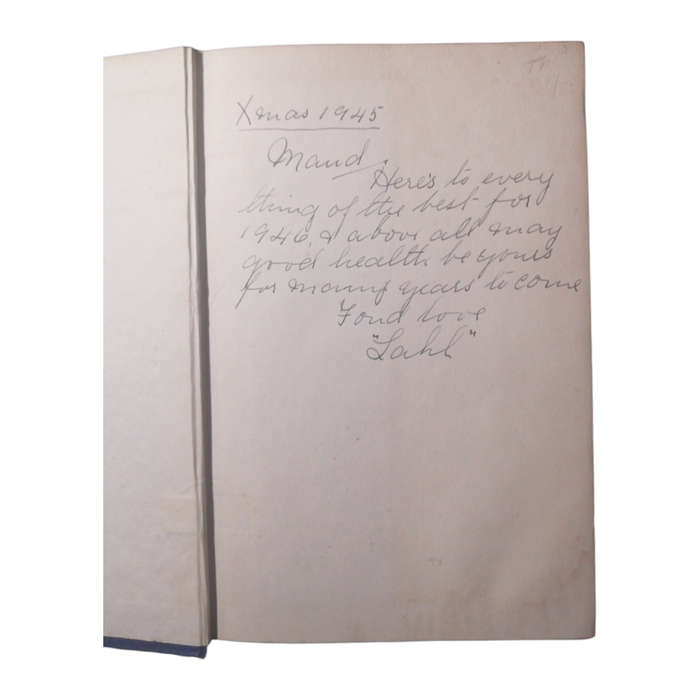 Xmas 1945
Maud,
Here's to every
thing of the best for
1946, & above all may
good health be yours
for many years to come
Fond love